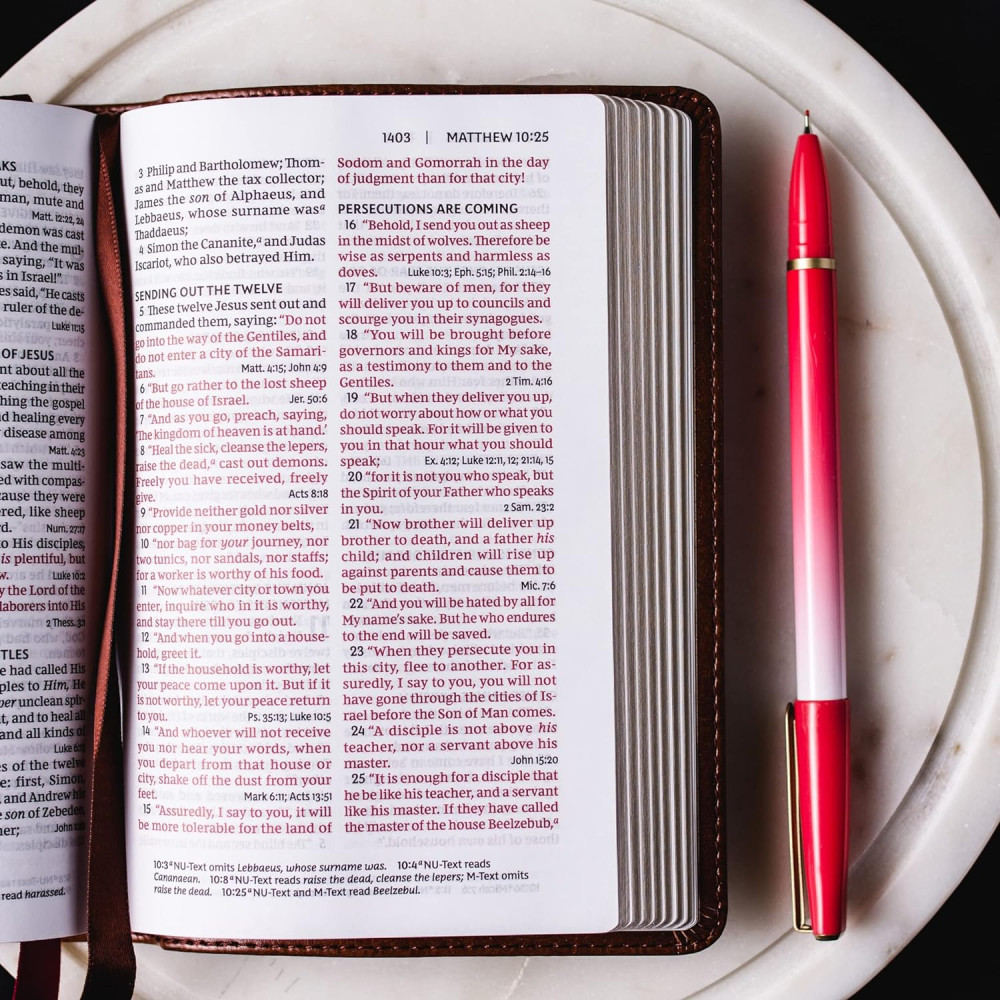 AKS
ut, behold, they
man, mute and
Matt. 12:22, 24
demon was cast
e. And the mul-
saying, "It was
s in Israel!"
es said, "He casts
ruler of the de-
Luke 11:15
OF JESUS
nt about all the
teaching in their
hing the gospel
d healing every
disease among
Matt. 4:23
saw the multi-
ed with compas-
cause they were
ered, like sheep
rd. Num. 27:17
to His disciples,
is plentiful, but
w. Luke 10:2
y the Lord of the
laborers into His
2 Thess. 3:1
TLES
e had called His
ples to Him, He
per unclean spir-
t, and to heal all
and all kinds of
Luke 6:13
es of the twelve
e: first, Simon,
and Andrew his
son of Zebedee,
her; John 1:42
read harassed.
1403 | MATTHEW 10:25
3 Philip and Bartholomew; Thom-
as and Matthew the tax collector;
James the son of Alphaeus, and
Lebbaeus, whose surname wasª
Thaddaeus;
4 Simon the Cananite,ª and Judas
Iscariot, who also betrayed Him.
SENDING OUT THE TWELVE
5 These twelve Jesus sent out and
commanded them, saying: "Do not
go into the way of the Gentiles, and
do not enter a city of the Samari-
tans. Matt. 4:15; John 4:9
6 "But go rather to the lost sheep
of the house of Israel. Jer. 50:6
7 "And as you go, preach, saying,
'The kingdom of heaven is at hand.'
8 "Heal the sick, cleanse the lepers,
raise the dead,ª cast out demons.
Freely you have received, freely
give. Acts 8:18
9 "Provide neither gold nor silver
nor copper in your money belts,
10 "nor bag for your journey, nor
two tunics, nor sandals, nor staffs;
for a worker is worthy of his food.
11 "Now whatever city or town you
enter, inquire who in it is worthy,
and stay there till you go out.
12 "And when you go into a house-
hold, greet it.
13 "If the household is worthy, let
your peace come upon it. But if it
is not worthy, let your peace return
to you. Ps. 35:13; Luke 10:5
14 "And whoever will not receive
you nor hear your words, when
you depart from that house or
city, shake off the dust from your
feet. Mark 6:11; Acts 13:51
15 "Assuredly, I say to you, it will
be more tolerable for the land of
Sodom and Gomorrah in the day
of judgment than for that city!
PERSECUTIONS ARE COMING
16 "Behold, I send you out as sheep
in the midst of wolves. Therefore be
wise as serpents and harmless as
doves. Luke 10:3; Eph. 5:15; Phil. 2:14–16
17 "But beware of men, for they
will deliver you up to councils and
scourge you in their synagogues.
18 "You will be brought before
governors and kings for My sake,
as a testimony to them and to the
Gentiles. 2 Tim. 4:16
19 "But when they deliver you up,
do not worry about how or what you
should speak. For it will be given to
you in that hour what you should
speak; Ex. 4:12; Luke 12:11, 12; 21:14, 15
20 "for it is not you who speak, but
the Spirit of your Father who speaks
in you. 2 Sam. 23:2
21 "Now brother will deliver up
brother to death, and a father his
child; and children will rise up
against parents and cause them to
be put to death. Mic. 7:6
22 "And you will be hated by all for
My name's sake. But he who endures
to the end will be saved.
23 "When they persecute you in
this city, flee to another. For as-
suredly, I say to you, you will not
have gone through the cities of Is-
rael before the Son of Man comes.
24 "A disciple is not above his
teacher, nor a servant above his
master. John 15:20
25 "It is enough for a disciple that
he be like his teacher, and a servant
like his master. If they have called
the master of the house Beelzebub,ª
10:3 ª NU-Text omits Lebbaeus, whose surname was. 10:4 ª NU-Text reads
Cananaean. 10:8 ª NU-Text reads raise the dead, cleanse the lepers; M-Text omits
raise the dead. 10:25 ª NU-Text and M-Text read Beelzebul.